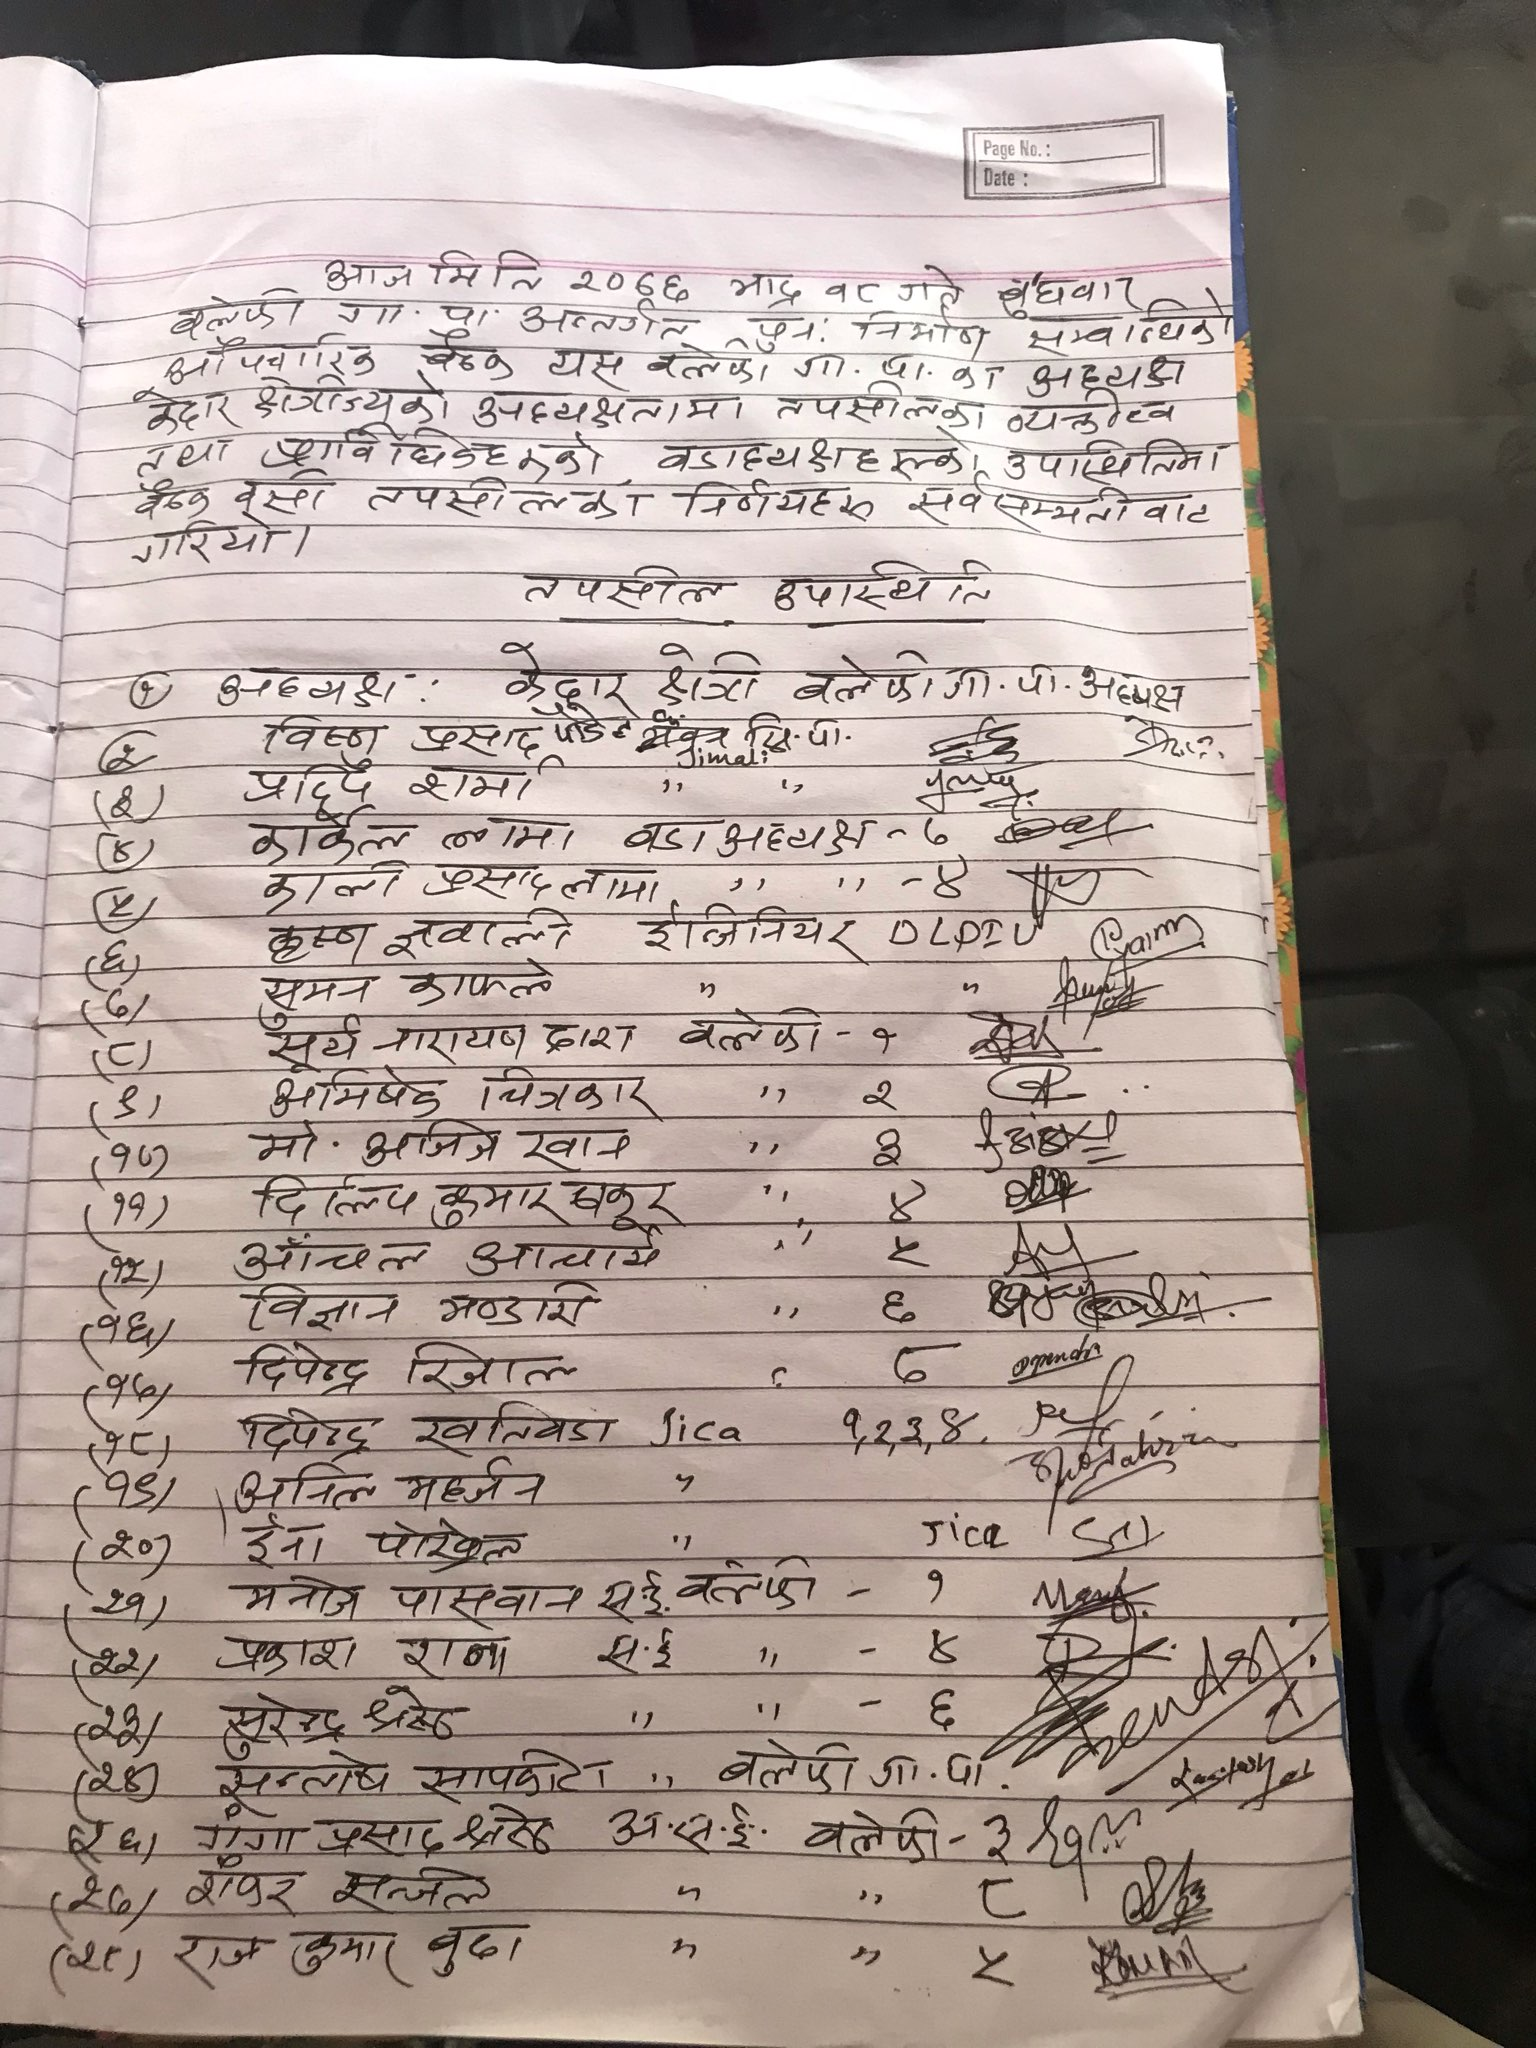 Page No. :
Date :
आज मिति २०७६ भाद्र १८ गते बुधवार
बलेफी गा. पा. अन्तर्गत पुनः निर्माण सम्वान्धिको
औपचारिक बैठक यस बलेफी गा. पा. का अध्यक्ष
केदार क्षेत्रीज्यूको अध्यक्षतामा तपसीलका
तथा प्राविधिकहरुको, वडाध्यक्षहरुको उपास्थितिमा
बैठक वसी तपसीलका निर्णयहरु सर्वसम्मतीवाट
गरियो।
तपसील उपास्थिति
(१) अध्यक्ष : केदार क्षेत्री बलेफी गा. पा. अध्यक्ष
(२) विष्णु प्रसाद पौडेल
Jimali
(३) प्रदिप शर्मा " "
(४) कार्केल लामा वडा अध्यक्ष - ७
(५) काली प्रसाद लामा " " - ४
(६) कृष्ण ज्ञवाली ईन्जिनियर DLPIU
(७) सुमन काफ्ले " "
(८) सूर्य नारायण दाश बलेफी - १
(९) अभिषेक चित्रकार " २
(१०) मो. अजिज खान " ३
(११) दिलिप कुमार ठाकुर " ४
(१५) आँचल आचार्य " ५
(१६) विज्ञान भण्डारी " ६
(१७) दिपेन्द्र रिजाल " ८ Dipendra
(१८) दिपेन्द्र खतिवडा Jica १,२,३,४,
(१९) अनिल महर्जन "
(२०) ईना पोख्रेल " Jica
(२१) मनोज पासवान स.ई. बलेफी - १
(२२) प्रकाश राना स.ई " - ४
(२३) सुरेन्द्र श्रेष्ठ " " - ६
(२४) सन्तोष सापकोटा " बलेफी गा. पा.
(२६) गंगा प्रसाद श्रेष्ठ अ.स.ई. बलेफी - ३
(२७) शंकर सन्जेल " " ८
(२८) राज कुमार बुढा " " ५